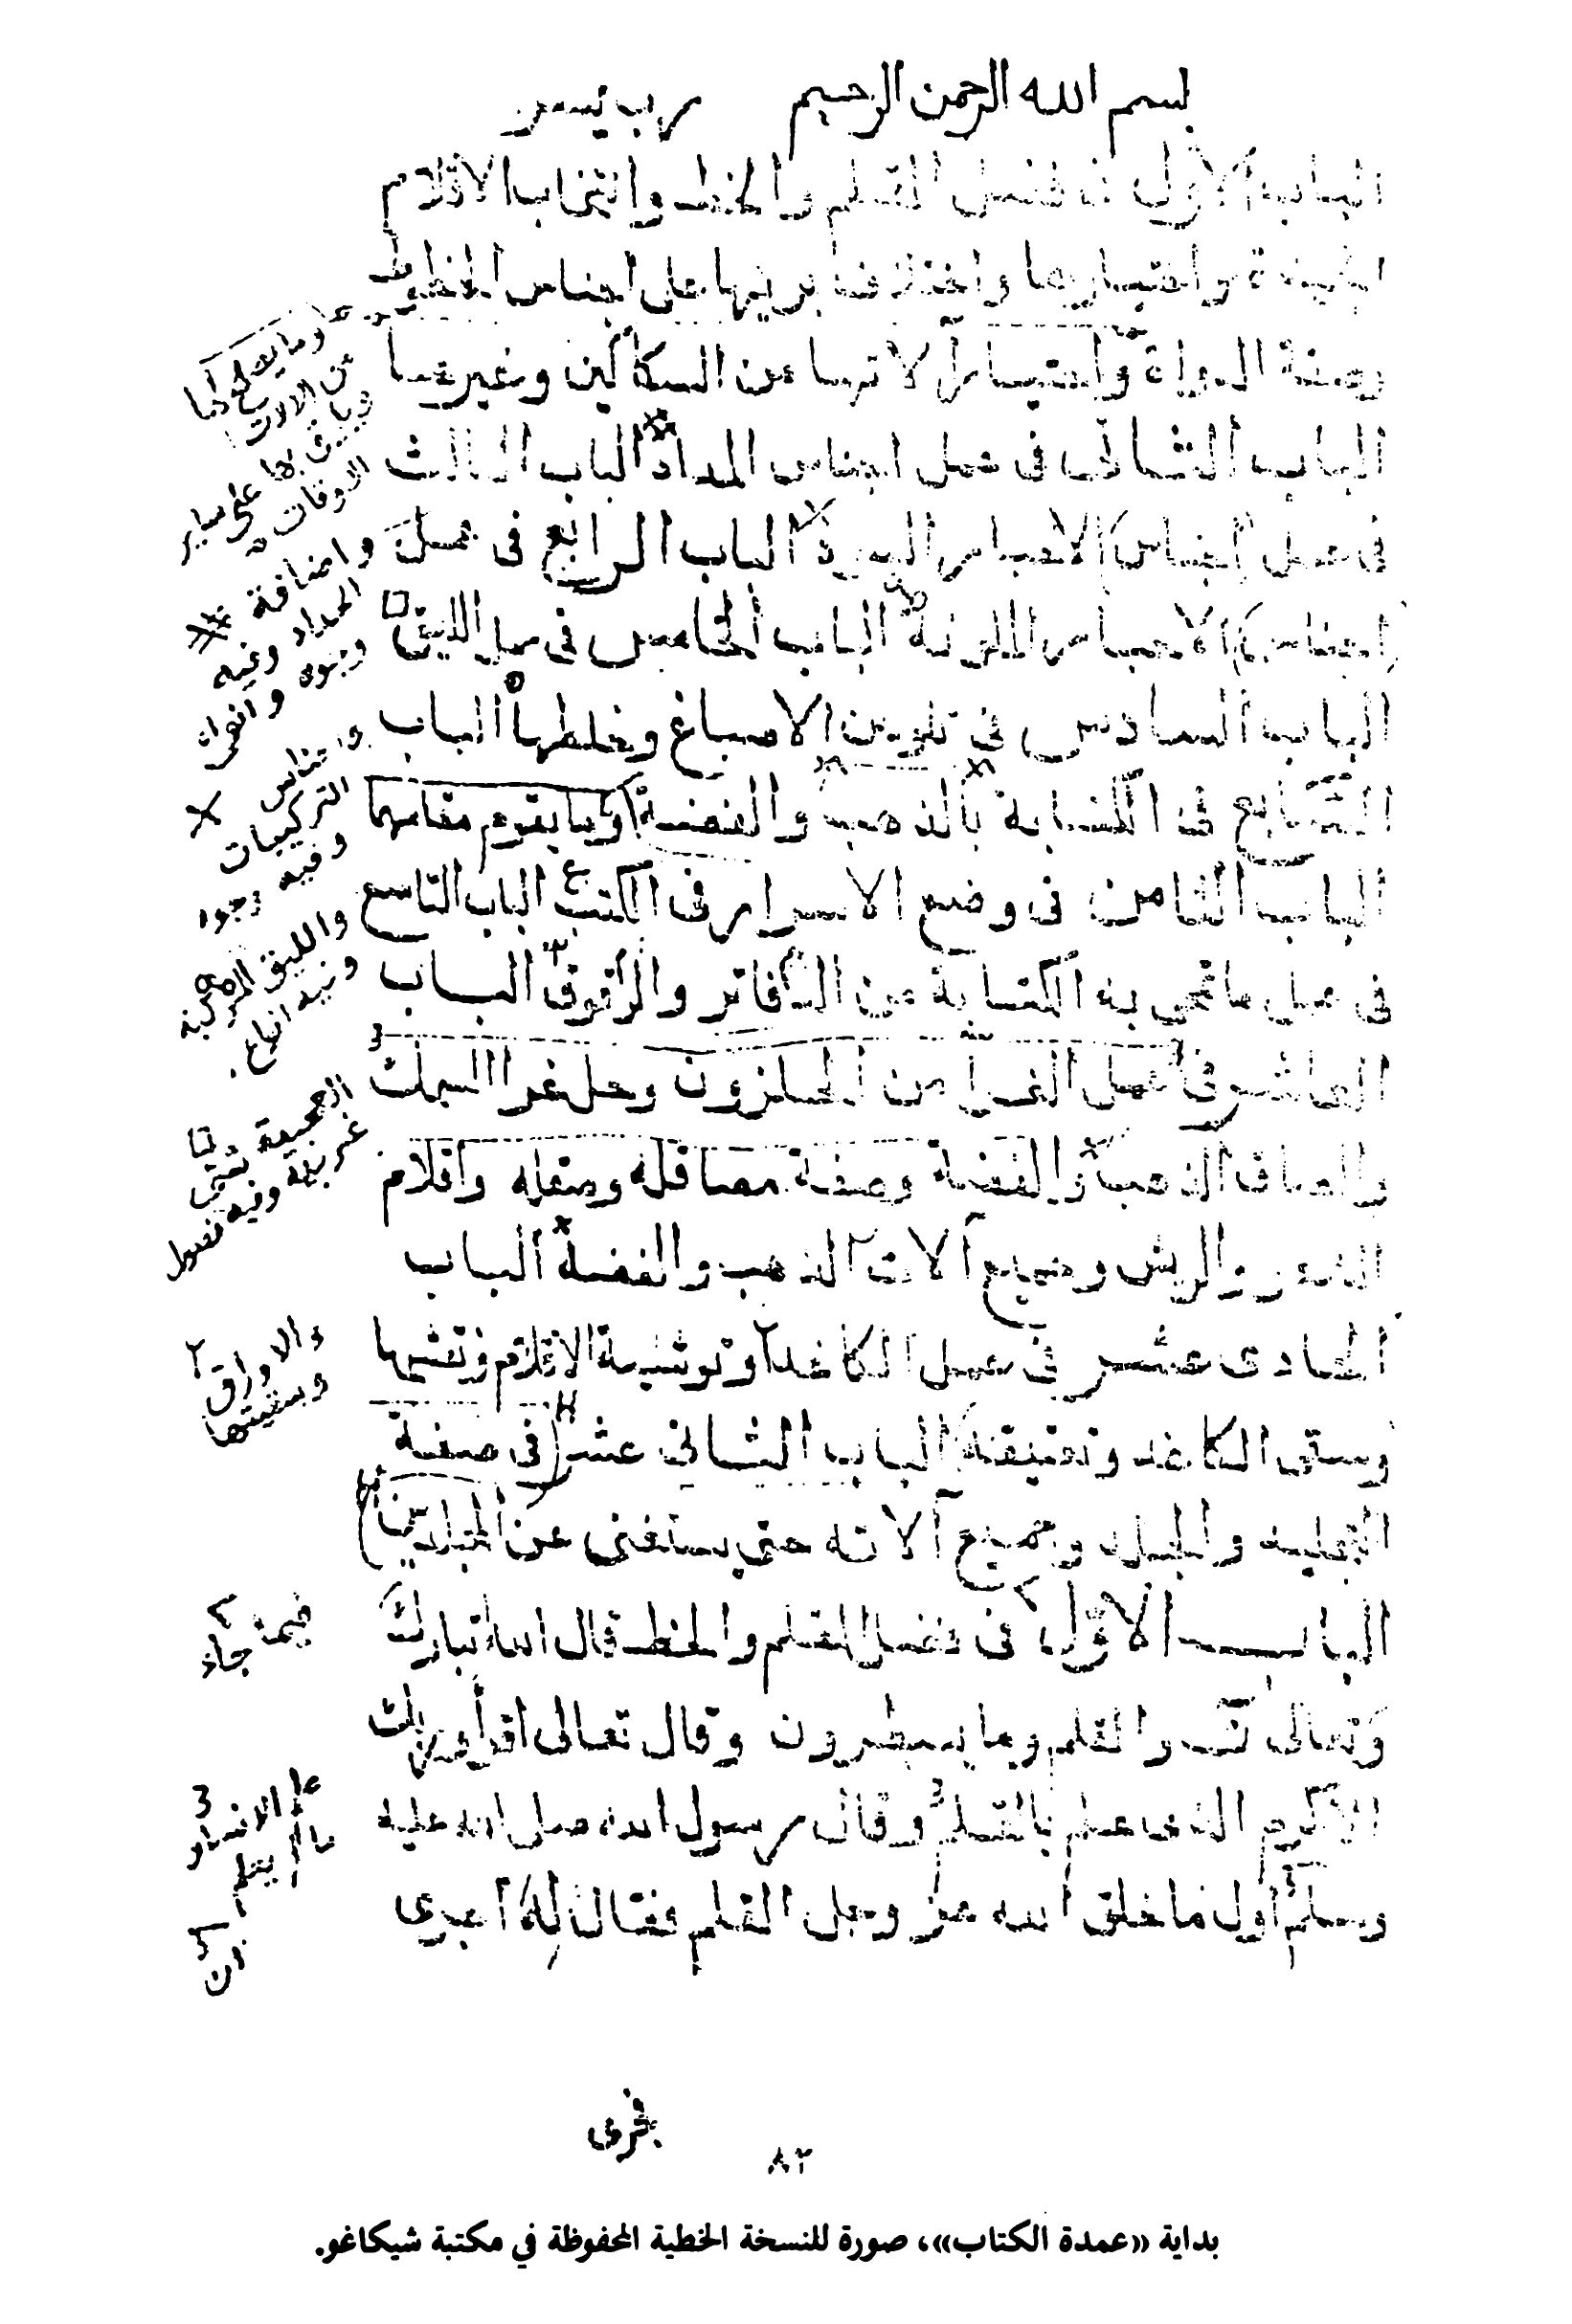 بسم الله الرحمن الرحيم رب يسر
الباب الاول في فضل القلم والخط وانتخاب الاقلام
الجيدة واختيارها واختلاف بريها على اجناس الخطوط
وصفة الدواة واختيار آلاتها من السكاكين وغيرها
الباب الثاني فى عمل اجناس المداد الباب الثالث
فى عمل اجناس الاحبار السود الباب الرابع فى عمل
اجناس الاحبار الملونة الباب الخامس فى عمل الليق
الباب السادس فى تلوين الاصباغ وخلطها الباب
السابع فى الكتابة بالذهب والفضة وما يقوم مقامهما
الباب الثامن فى وضع الاسرار فى الكتب الباب التاسع
فى عمل ما تمحى به الكتابة من الدفاتر والرقوق البـاب
العاشر فى عمل الغرا من الحلزون وحل غرا السمك
والصاق الذهب والفضة وصفة مصاقله ومقله واقلام
الشعر والريش وجميع آلات الذهب والفضة الباب
الحادى عشر فى عمل الكاغد وتوشية الاقلام ونقشها
وسقى الكاغد وتعتيقه الباب الثانى عشر فى صفة
التجليد والجلد وجميع آلاته حتى يستغنى عن المجلدين
البـاب الاول فى فضل القلم والخط قال الله تبارك
وتعالى نٓ والقلم وما يسطرون وقال تعالى اقرأ وربك
الاكرم الذى علم بالقلم وقال رسول الله صلى الله عليه
وسلم اول ما خلق الله عز وجل القلم فقال له اجرى
وما يصلح لها
من الالات
على ساير
الاوقات
واضافة
المداد وفيه
واجناس
التركيبات
وفيه وجوه
والليق المركبة
وفيه انواع
العجيبة
وفيه فصول
والاوراق
وسقيتها
فيما جاء
علم الانسان
ما لم يعلم
فجرى
٨٢
بداية «عمدة الكتاب»، صورة للنسخة الخطية المحفوظة في مكتبة شيكاغو.